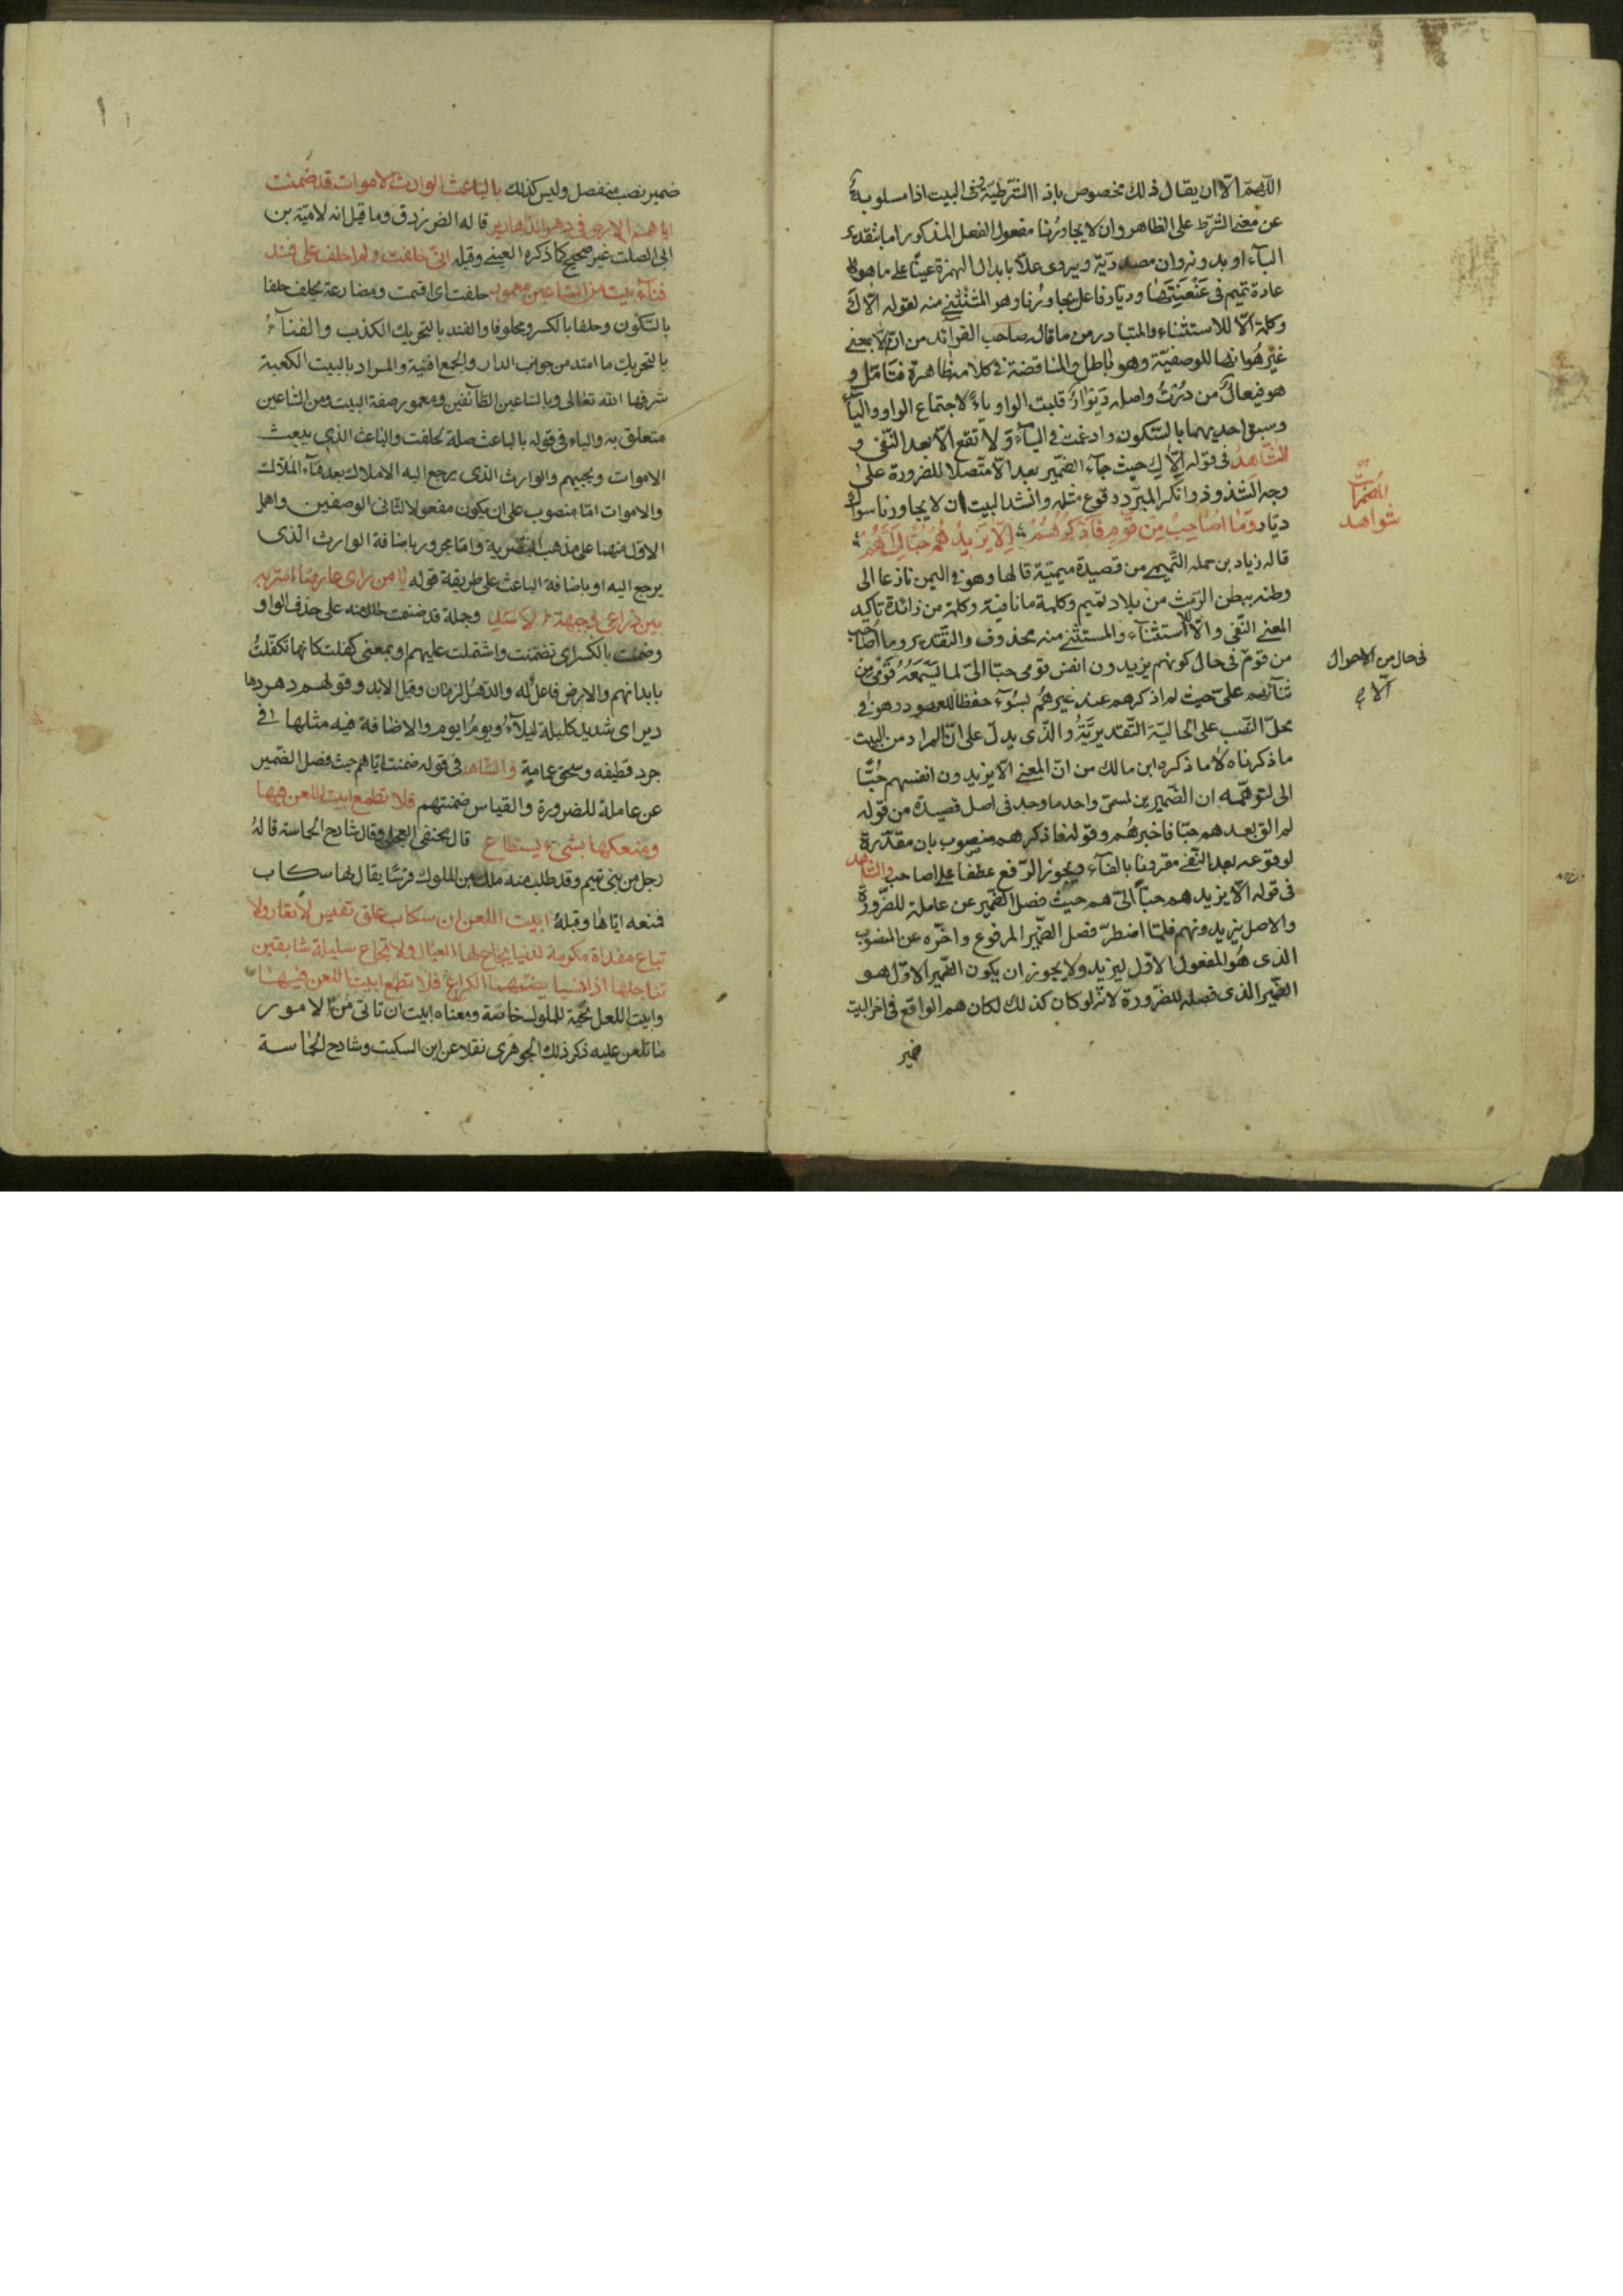 اللّهمّ الّا ان يقال ذلك مخصوص باذا الشرطيّة وفى البيت اذا مسلوبة
عن معنى الشرط على الظاهر وان لا يجاورنا مفعول الفعل المذكور اما بتقدير
الباء او بدونه وان مصدريّة ويروى علّا بابدال الهمزة عينًا على ما هو
عادة تميم فى عنعنتها وديّار فاعل يجاورنا وهو المستثنى منه لقوله الّاك
وكلمة الّا للاستثناء والمتبادر من ما قال صاحب الفوائد من انّ الّا بمعنى
غير هو انها للوصفيّة وهو باطل والمناقضة فى كلامه ظاهرة فتامّل و
هو فيعال من درت واصله ديوار قلبت الواو ياءً لاجتماع الواو والياء
وسبق احديهما بالسّكون وادغمت فى الياء ولا تقع الّا بعد النّفى و
الشّاهد فى قوله الّاك حيث جاء الضمير بعد الّا متّصلا للضرورة على
وجه الشذوذ وانكر المبرّد وقوع مثله وانشد البيت ان لا يجاورنا سواك
ديّار وما اصاحب من قوم فاذكرهم الّا يزيدهم حبّا الىّ هم
قاله زياد بن حمله التّميمى من قصيدة ميميّة قالها وهو فى اليمن نازعا الى
وطنه ببطن الرّمث من بلاد تميم وكلمة ما نافية وكلمة من زائدة تاكيد
المعنى النّفى والّا للاستثناء والمستثنى منه محذوف والتقدير وما اصاحب
من قوم فى حال كونهم يزيدون انفس قومى حبّا الىّ لما يسمعه قومى من
ثنائهم علىّ حيث لم اذكرهم عند غيرهم بسوء حفظا للعهود وهو فى
محلّ النّصب على الحاليّة التّقديريّة والّذى يدلّ على انّ المراد من البيت
ما ذكرناه لا ما ذكره ابن مالك من انّ المعنى الّا يزيدون انفسهم حبّا
الى لتوهّمه ان الضّميرين لمسمّى واحد ما وجد فى اصل قصيدة من قوله
لم الق بعدهم حبّا فاخبرهم وقوله فاذكرهم منصوب بان مقدّرة
لوقوعه بعد النّفى مقرونًا بالفاء ويجوز الرّفع عطفا على اصاحب والشاهد
فى قوله الّا يزيدهم حبّاً الىّ هم حيث فصل الضّمير عن عامله للضّرورة
والاصل يزيدونهم فلمّا اضطرّ فصل الضّمير المرفوع واخّره عن المنصوب
الذى هو المفعول الاوّل ليزيد ولا يجوز ان يكون الضّمير الاوّل هو
الضّمير الذى فصله للضّرورة لانّه لو كان كذلك لكان هم الواقع فى اخر البيت
ضمير
المضمرات
شواهد
فى حال من الاحوال
الّا
ضمير نصب منفصل وليس كذلك بالباعث الوارث الاموات قد ضمنت
اياهم الارض فى دهر الدّهارير قاله الفرزدق وما قيل انه لاميّة بن
ابى الصلت غير صحيح كما ذكره العينى وقبله انى حلفت ولم احلف على فند
فناء بيت من السّاعين معمور حلفت اى اقسمت ومضارعه يحلف حلفا
بالسّكون وحلفا بالكسر ومحلوفا والفند بالتحريك الكذب والفناء
بالتحريك ما امتد من جوانب الدار والجمع افنية والمراد بالبيت الكعبة
شرفها الله تعالى وبالساعين الطّائفين ومعمور صفة البيت ومن السّاعين
متعلق به والباء فى قوله بالباعث صلة لحلفت والباعث الذى يبعث
الاموات ويحييهم والوارث الذى يرجع اليه الاملاك بعد فناء الملّاك
والاموات امّا منصوب على ان يكون مفعولا لثانى الوصفين واهمل
الاوّل منهما على مذهب البصرية وامّا مجرور باضافة الوارث الّذى
يرجع اليه او باضافة الباعث على طريقة قوله يا من راى عارضا اسرّ به
بين ذراعى وجبهة الاسد وجملة قد ضمنت حال منه على حذف الواو
وضمنت بالكسر اى تضمنت واشتملت عليهم او بمعنى كفلت كانها تكفلت
بابدانهم والارض فاعل له والدّهر الزمان وقيل الابد وقولهم دهر دها
رير اى شديد كليلة ليلاء ويوم ايوم والاضافة فيه مثلها فى
جرد قطيفه وسحق عمامة والشّاهد فى قوله ضمنت ايّاهم حيث فصل الضّمير
عن عامله للضرورة والقياس ضمنتهم فلا تطمع ابيت اللعن فيها
ومنعكها بشىء يستطاع قال تحنفى العجلى وقال شارح الحماسة قاله
رجل من بنى تميم وقد طلب منه ملك من الملوك فرسًا يقال لها سكاب
فمنعه ايّاها وقبله ابيت اللعن ان سكاب علق نفيس لا تعار ولا
تباع مفداة مكرمة لدنيا يجاع لها العيال ولا تجاع سليلة سابقين
تناجلها اذا نسبا يضمهما الكراع فلا تطمع ابيت اللعن فيها
وابيت اللعن تحية للملوك خاصّة ومعناه ابيت ان تاتى من الامور
ما تلعن عليه ذكر ذلك الجوهرى نقلا عن ابن السكيت وشارح الحماسة